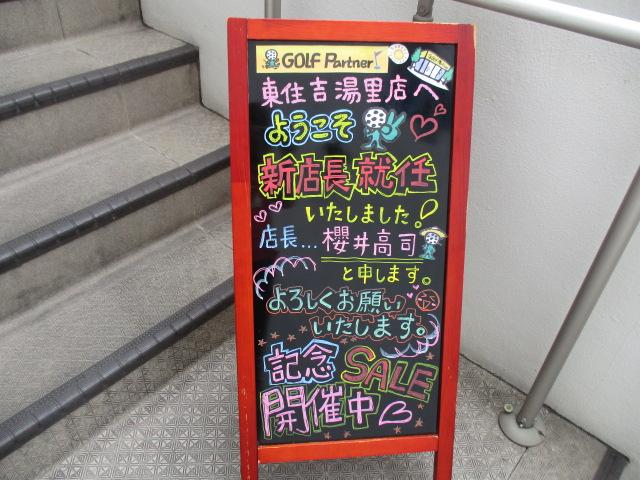 GOLF Partner
東住吉湯里店へ
ようこそ
新店長就任
いたしました!
店長…櫻井高司
と申します。
よろしくお願い
いたします。
記念SALE
開催中